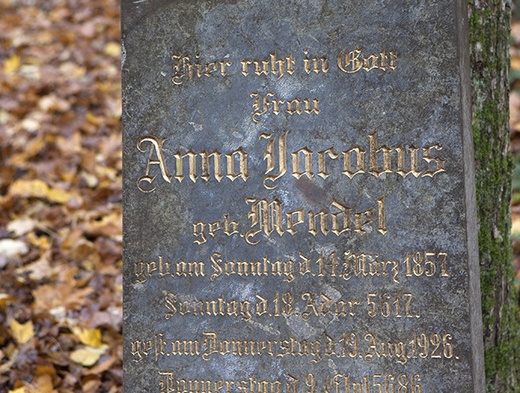 Hier ruht in Gott
Frau
Anna Jacobus
geb. Mendel
geb. am Sonntag d. 14. März 1857.
Sonntag d. 18. Adar 5617.
gest. am Donnerstag d. 19. Aug. 1926.
Donnerstag d. 9. Elul 5686.